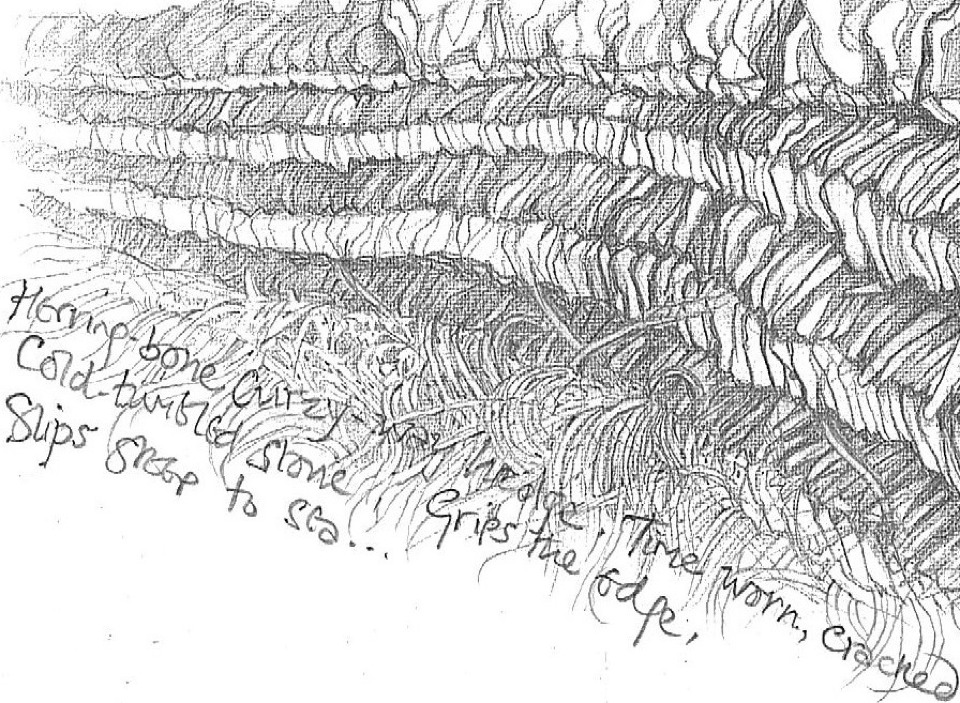 Herring-bone Curzy-way hedge. Time worn, cracked
Cold-twisted stone Grips the edge,
Slips steep to sea...